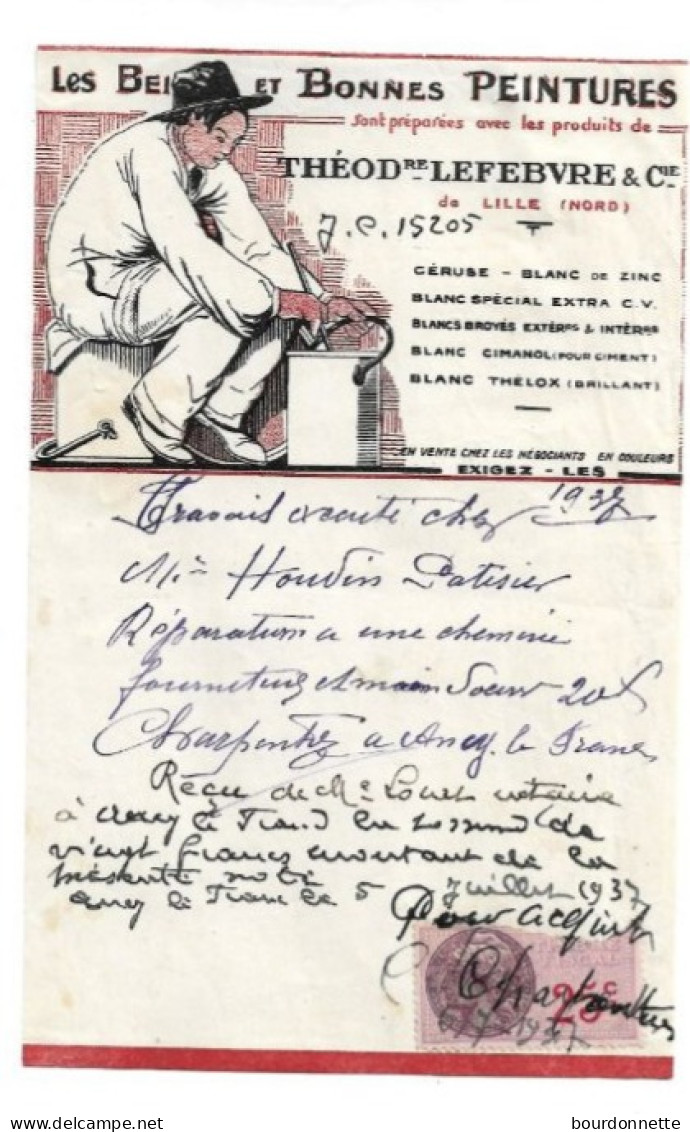 LES BEL ET BONNES PEINTURES
sont préparées avec les produits de
THÉOD^RE LEFEBVRE & C^IE
de LILLE (NORD)
J.C. 15205
CÉRUSE - BLANC DE ZINC
BLANC SPÉCIAL EXTRA C.V.
BLANCS BROYÉS EXTÉR^RS & INTÉR^RS
BLANC CIMANOL (POUR CIMENT)
BLANC THÉLOX (BRILLANT)
EN VENTE CHEZ LES NÉGOCIANTS EN COULEURS
EXIGEZ - LES
1937
Travais executé chez
Houdin Patisier
Réparation a une cheminé
fourniture et main d'oeuvre 20 f
Charpentier a Ancy le Franc
Reçu de M^e notaire
à Ancy le Franc la somme de
vingt francs montant de la
présente note
Ancy le Franc le 5 Juillet 1937
Pour acquit
Charpentier
25 c
5/7 1937
bourdonnette